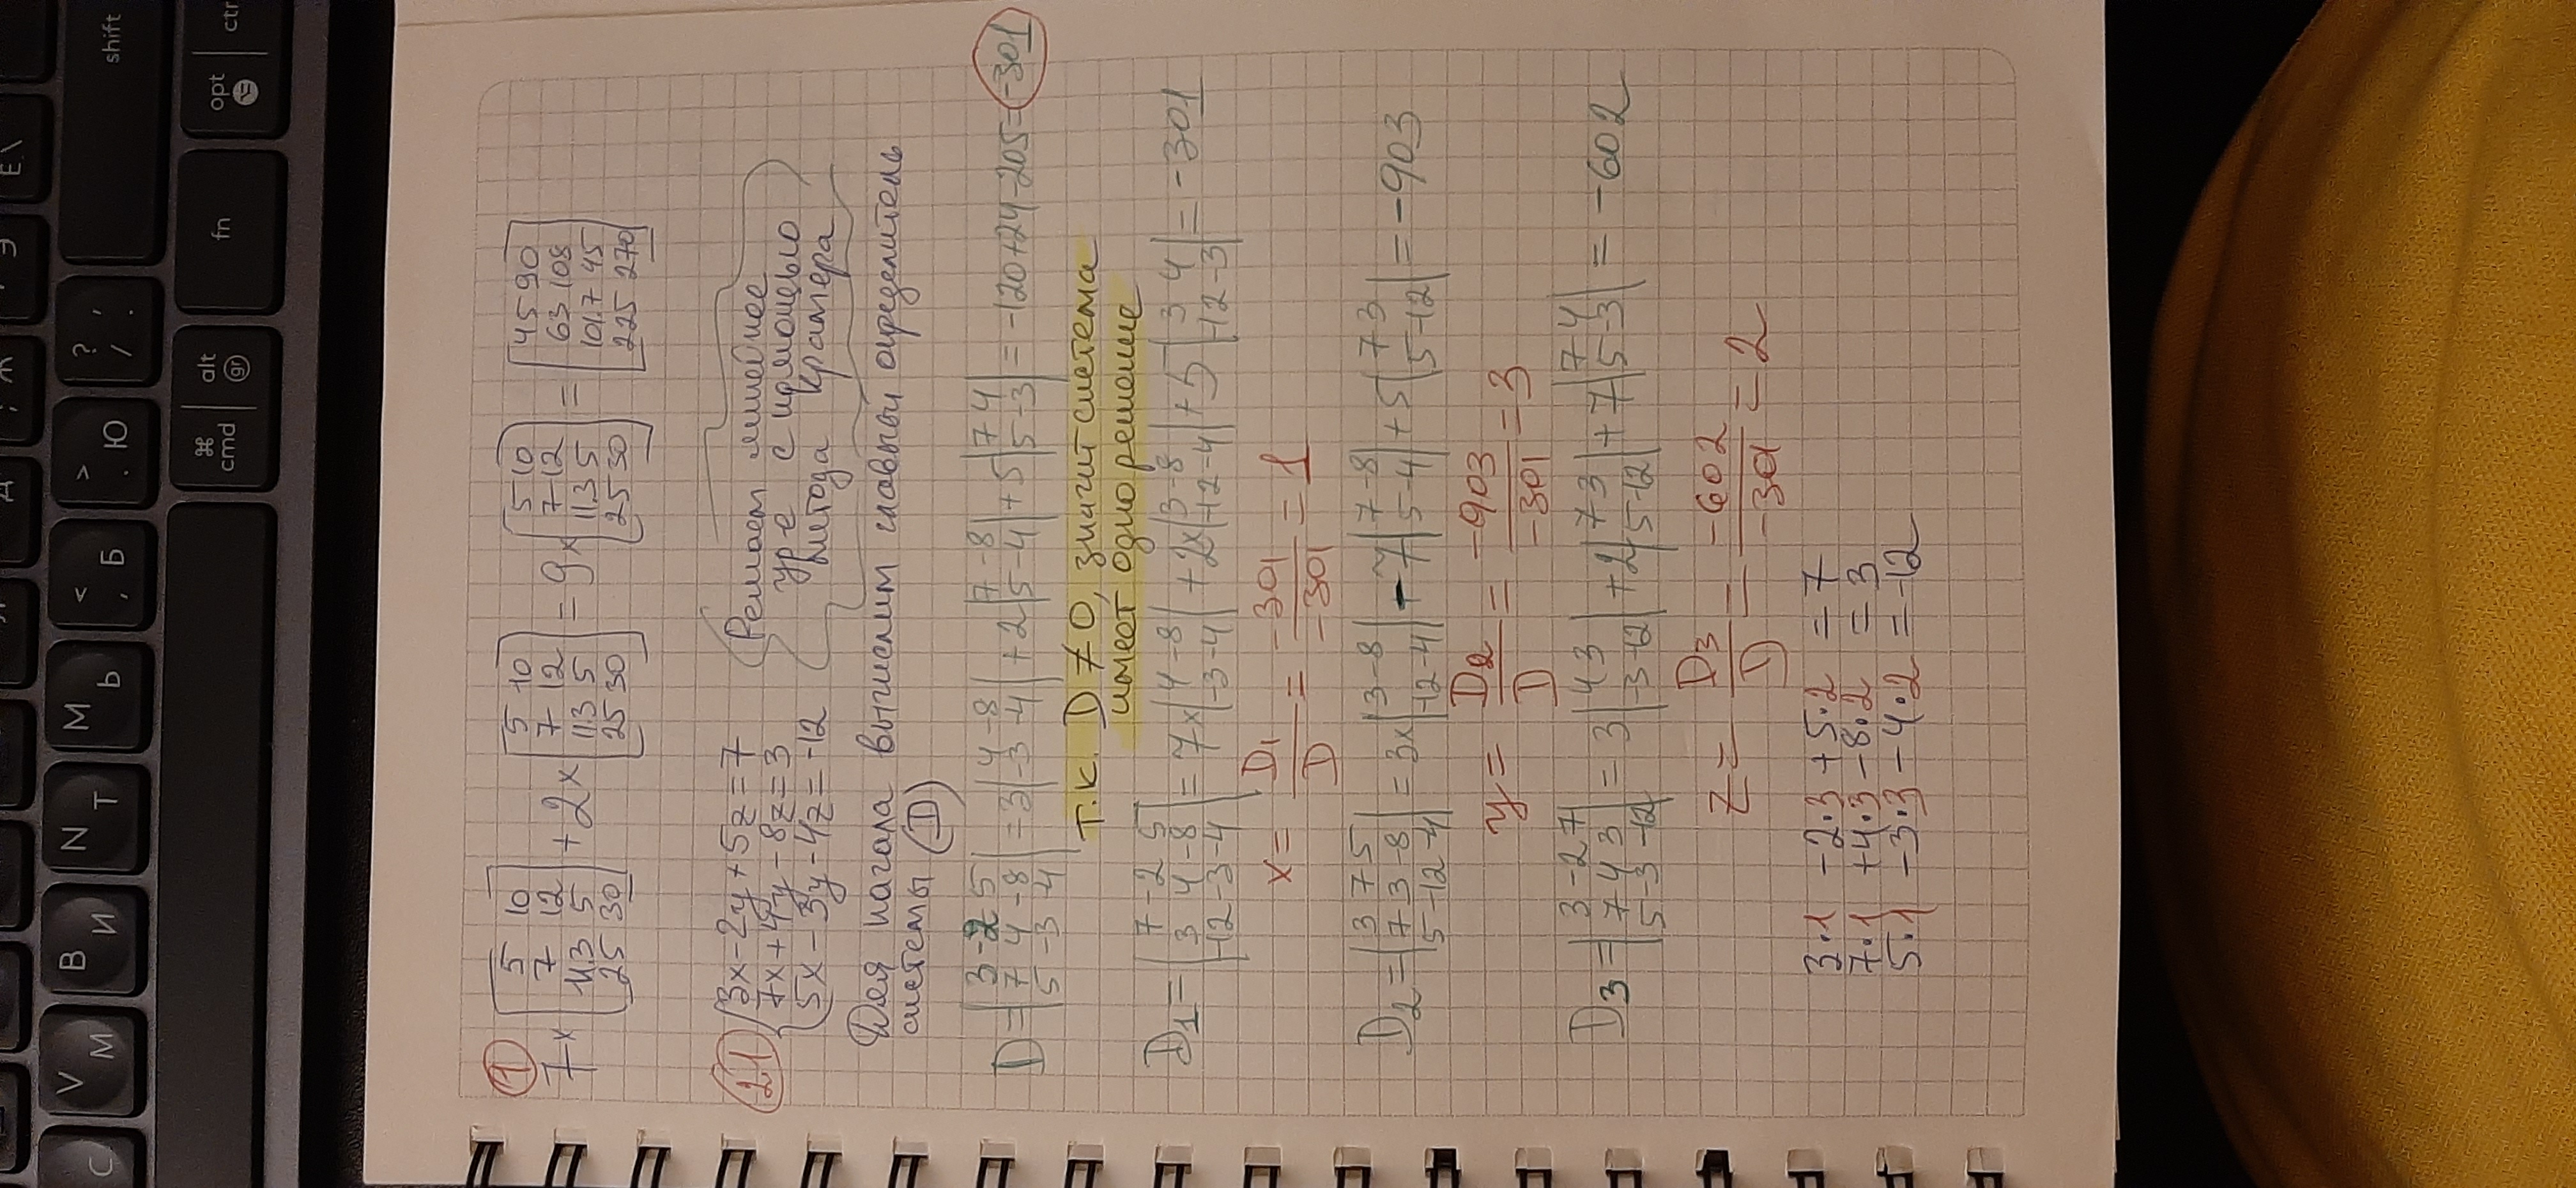 Д ; Ж ' Э Ё \
C V М B И N Т M Ь < , Б > . Ю ? , / . shift
⌘ cmd alt gr fn opt ⌥ ctr
1
7 × [5 10; 7 12; 11.3 5; 25 30] + 2 × [5 10; 7 12; 11.3 5; 25 30] = 9 × [5 10; 7 12; 11.3 5; 25 30] = [45 90; 63 108; 101.7 45; 225 270]
2.1 { 3x - 2y + 5z = 7
7x + 4y - 8z = 3
5x - 3y - 4z = -12
Решаем линейное
ур-е с помощью
метода Крамера
Для начала вычислим главный определитель
системы (D)
D = |3 -2 5; 7 4 -8; 5 -3 -4| = 3|4 -8; -3 -4| + 2|7 -8; 5 -4| + 5|7 4; 5 -3| = -120 + 24 - 205 = -301
т.к. D ≠ 0, значит система
имеет одно решение
D1 = |7 -2 5; 3 4 -8; -12 -3 -4| = 7 × |4 -8; -3 -4| + 2 × |3 -8; -12 -4| + 5|3 4; -12 -3| = -301
x = D1/D = -301/-301 = 1
D2 = |3 7 5; 7 3 -8; 5 -12 -4| = 3 × |3 -8; -12 -4| - 7|7 -8; 5 -4| + 5|7 3; 5 -12| = -903
y = D2/D = -903/-301 = 3
D3 = |3 -2 7; 7 4 3; 5 -3 -12| = 3|4 3; -3 -12| + 2|7 3; 5 -12| + 7|7 4; 5 -3| = -602
z = D3/D = -602/-301 = 2
3·1 - 2·3 + 5·2 = 7
7·1 + 4·3 - 8·2 = 3
5·1 - 3·3 - 4·2 = -12